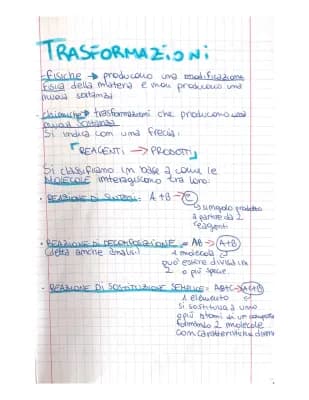 TRASFORMAZIONI
- fisiche → producono una modificazione
fisica della materia e non producono una
nuova sostanza
- chimiche → trasformazioni che producono una
nuova sostanza
Si indica con una freccia:
「REAGENTI → PRODOTTI」
Si classificano in base a come le
MOLECOLE interagiscono tra loro:
• REAZIONE DI SINTESI: A + B → C
singolo prodotto
a partire da 2
reagenti
• REAZIONE DI DECOMPOSIZIONE = AB → A+B
(detta anche analisi)
1 molecola
può essere divisa in
2 o più specie.
• REAZIONE DI SOSTITUZIONE SEMPLICE: AB+C →
1 elemento
si sostituisce a uno
o più atomi di un composto
formando 2 molecole
con caratteristiche